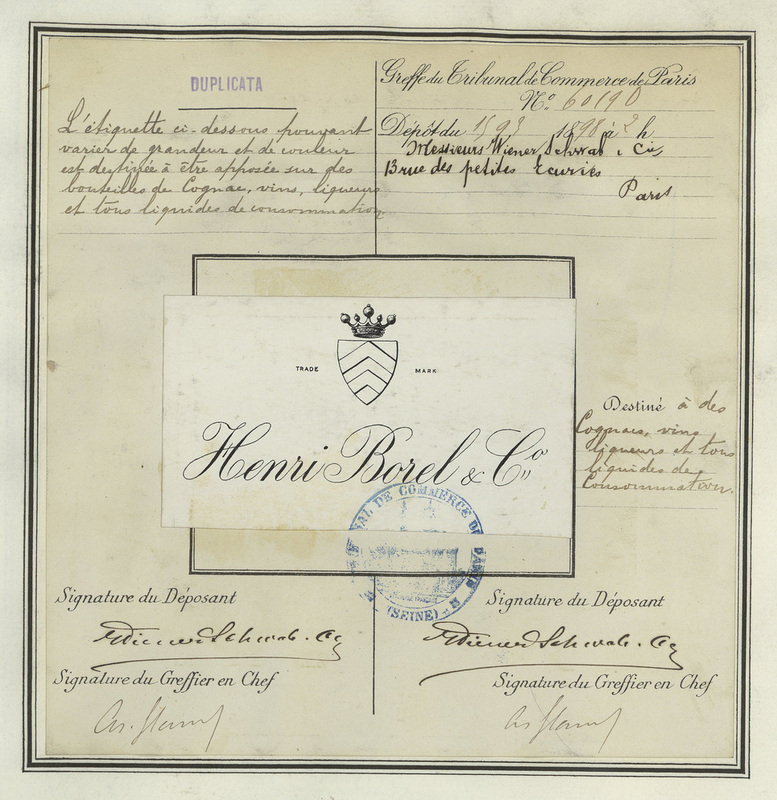 DUPLICATA
L'étiquette ci-dessous pouvant
varier de grandeur et de couleur
est destinée à être apposée sur des
bouteilles de Cognac, vins, liqueurs
et tous liquides de consommation
Greffe du Tribunal de Commerce de Paris
No. 60190
Dépôt du 189 à 2 h
Messieurs Wiener Schwab & Cie
13 rue des petites Ecuries
Paris
TRADE MARK
Henri Borel & Co
Destiné à des
Cognacs, vins
liqueurs et tous
liquides de
Consommation.
TRIBUNAL DE COMMERCE DE PARIS
(SEINE)
Signature du Déposant
Wiener Schwab. Co
Signature du Greffier en Chef
Signature du Déposant
Wiener Schwab. Co
Signature du Greffier en Chef